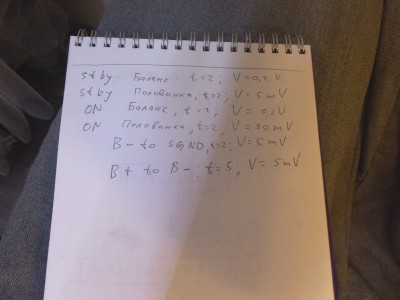 st by Баланс t=2; V=0,2 V
st by Половинка, t=2, V=5mV
ON Баланс, t=2; V=0,2V
ON Половинка, t=2, V=30mV
B- to SGND, t=2; V=5mV
B+ to B- t=5, V=5mV